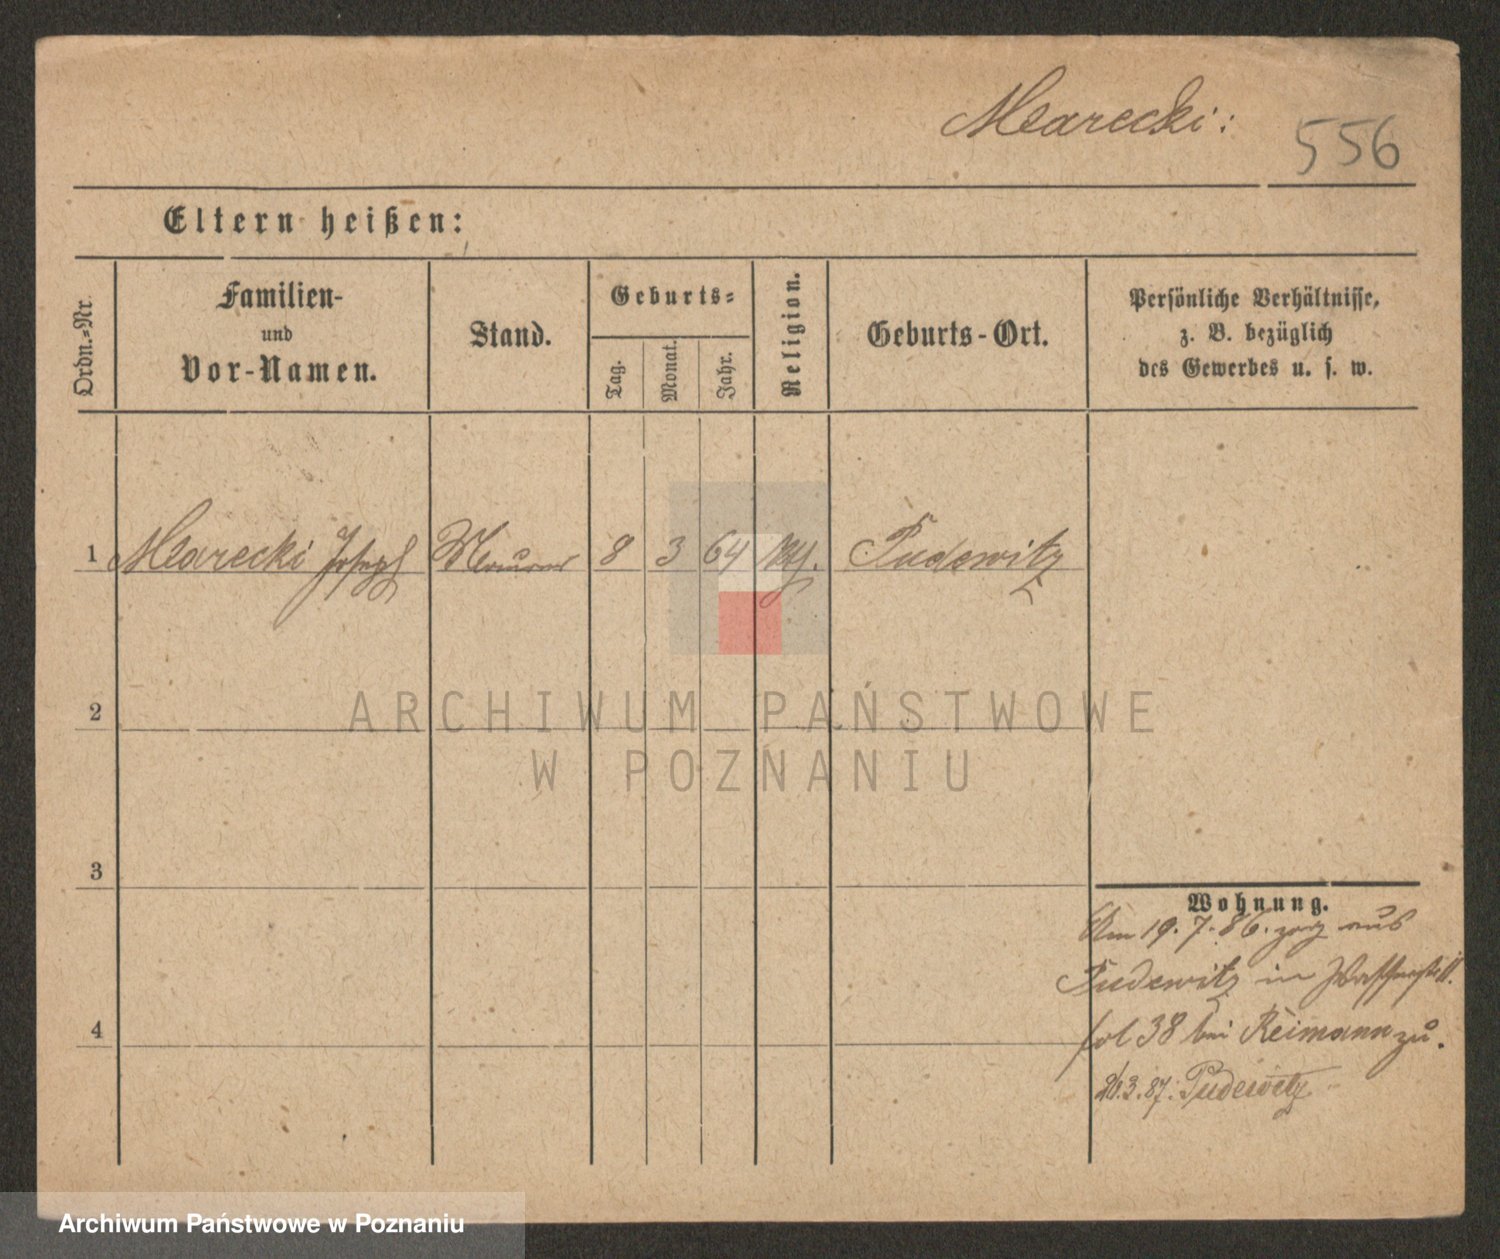 Marecki:
556
Eltern heißen:
Ordn.-Nr.
Familien-
und
Vor-Namen.
Stand.
Geburts-
Tag.
Monat.
Jahr.
Religion.
Geburts-Ort.
Persönliche Verhältnisse,
z. B. bezüglich
des Gewerbes u. s. w.
1 Marecki Joseph Maurer 8 3 64 Pudewitz
2
3
4
Wohnung.
Am 19.7.86. zog aus
Pudewitz in
38 bei Reimann zu.
3.87. Pudewitz
ARCHIWUM PAŃSTWOWE
W POZNANIU
Archiwum Państwowe w Poznaniu